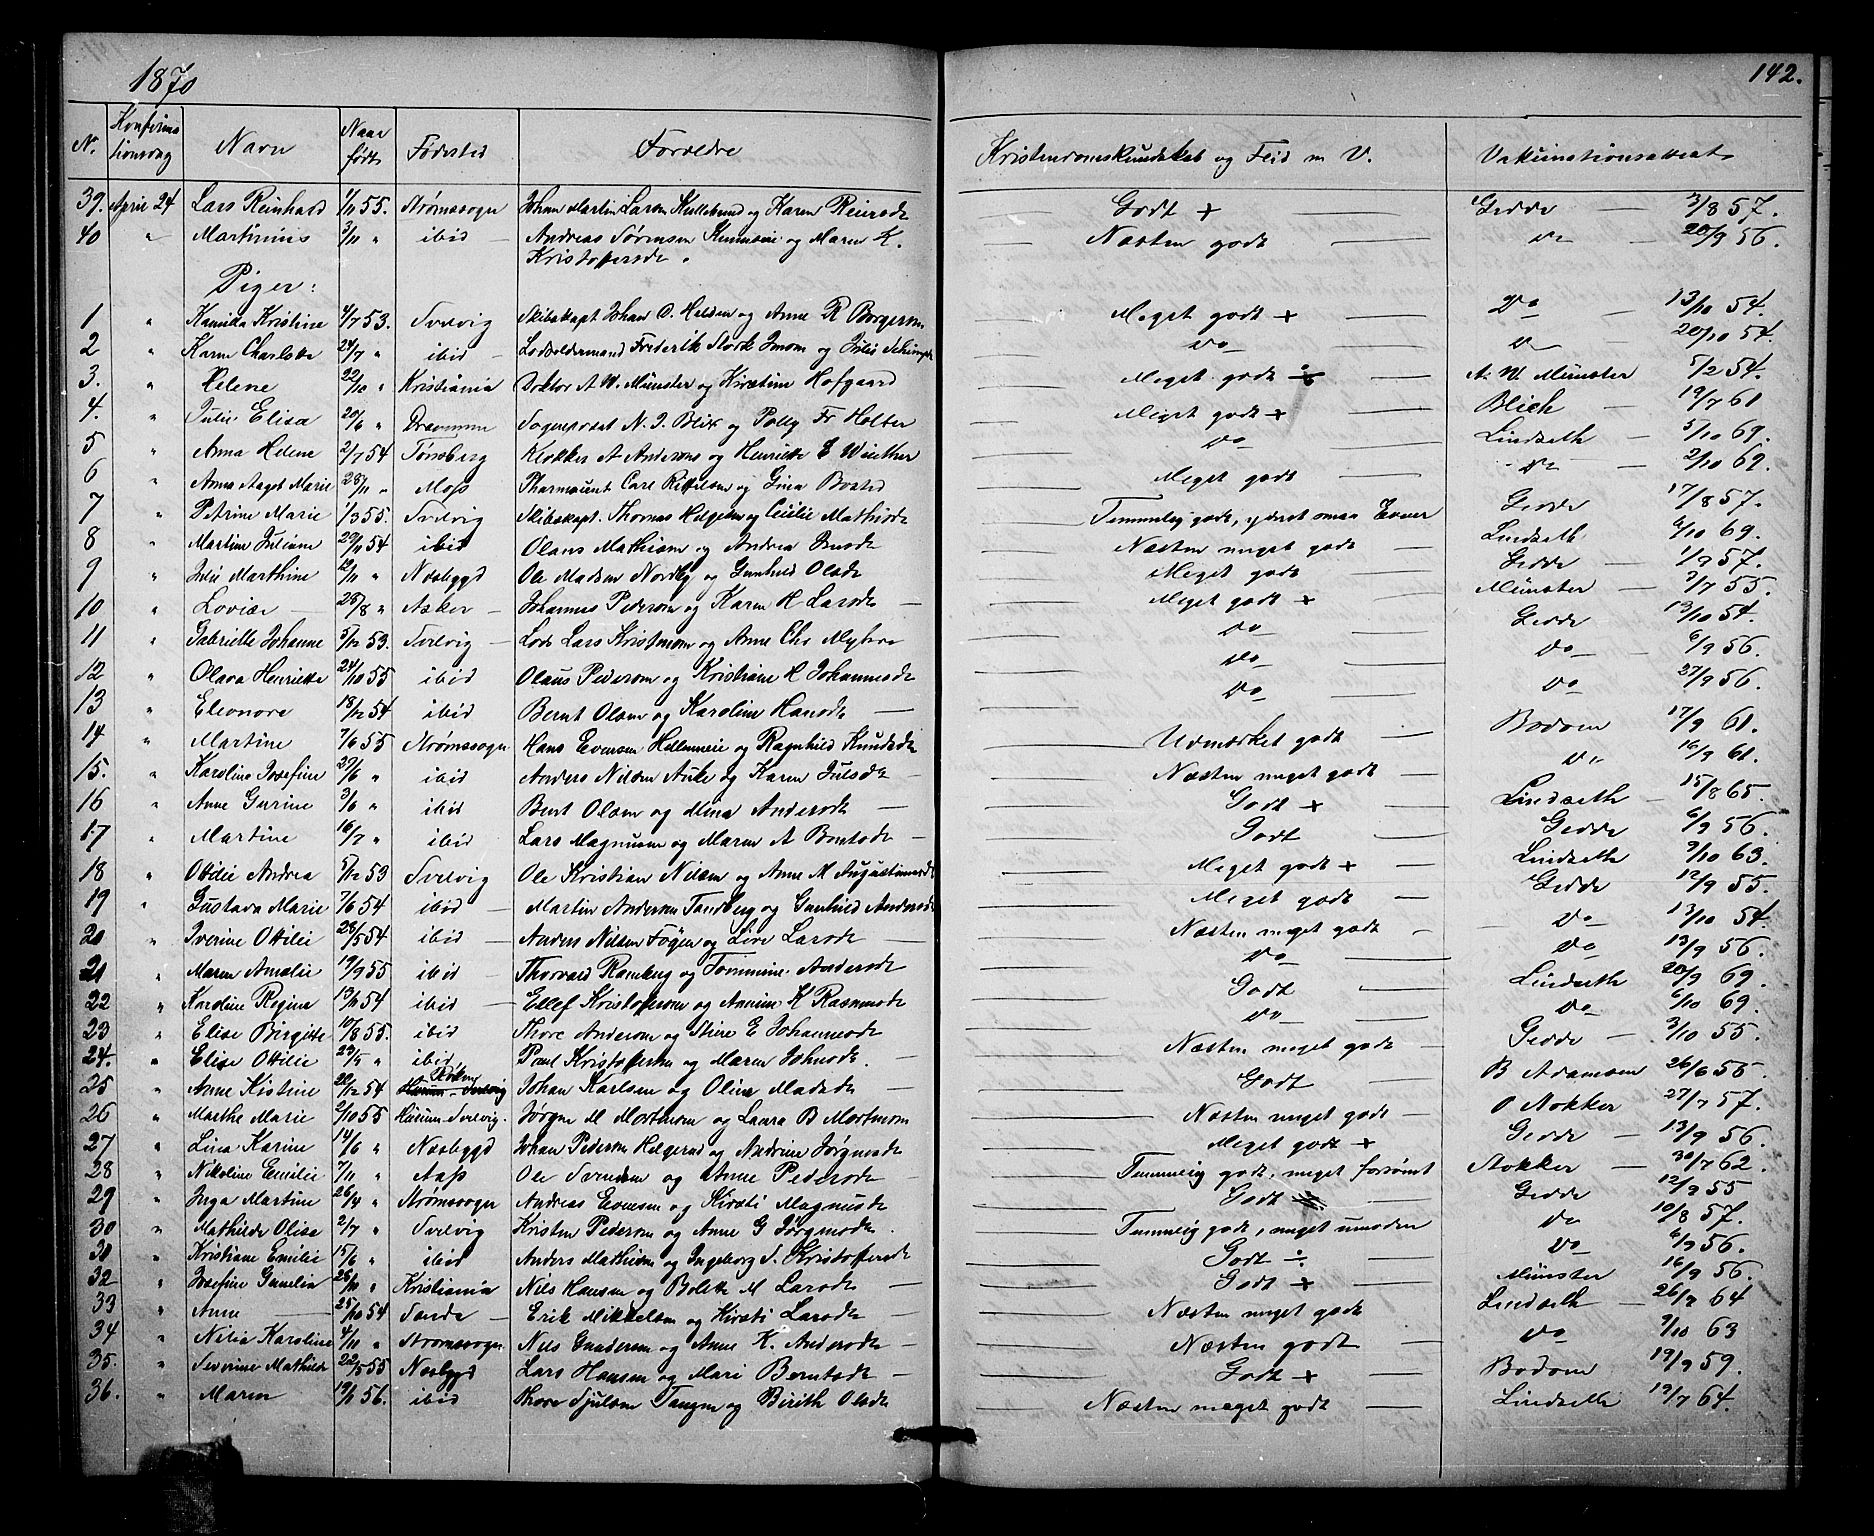 1870
142.
N. Konfirmationsdag Navn Naar født Fødested Forældre Kristendomskundskab og Flid m V. Vakcinationsattest
39. April 24 Lars Reinhard 1/11 55. Strømssogn Johan Martin Larsen og Karen Reiersdt Godt + Gedde 3/8 57.
40 " Martinius 3/11 " ibid Andreas Sørensen og Maren K. Næsten godt Do 20/9 56.
Kristoffersdt.
Piger:
1 " Kamilla Kristine 4/7 53. Svelvig Skibskapt Johan O. og Anne R Borgersen Meget godt + Do 13/10 54.
2 " Karen Charlotte 24/7 " ibid Lodsoldermand Frederik Stork og Julie Do 20/10 54.
3. " Helene 22/10 " Kristiania Doktor A W. Münster og Kirstine Hofgaard Meget godt ÷ A. W. Münster 5/2 54.
4. " Julie Elisa 20/6 " Drammen Sogneprest N. J. Blix og Polly Fr Holter Meget godt + Blich 19/7 61
5 " Anna Helene 2/7 54 Tønsberg Klokker A Andersens og Henriette E Winther Do Lindseth 5/10 69.
6 " Anna Aagot Marie 28/11 " Moss Pharmaceut Carl og Gina Meget godt Do 2/10 69.
7 " Petrine Marie 1/3 55. Svelvig Skibskapt. Thomas Helgesen og Cecilie Mathisdt Temmelig godt, yderst smaa Evner Gedde 17/8 57.
8 " Martine Juliane 29/11 54 ibid Olaus Mathisen og Andrea Næsten meget godt Lindseth 6/10 69.
9 " Julie Marthine 19/11 " Næsbygd Ole Madsen Nordby og Gunhild Olsdt Meget godt Gedde 1/9 57.
10 " Lovise 28/8 " Asker Johannes Pedersen og Karen H Larsdt Meget godt + Münster 3/7 55.
11 " Gabrielle Johanne 5/12 53. Svelvig Lods Lars Kristensen og Anne Chs Myhre Do Gedde 13/10 54.
12 " Olava Henriette 24/10 55 ibid Olaus Pedersen og Kristiane H Johannesdt Do Do 6/9 56.
13 " Eleonore 18/12 54 ibid Bernt Olsen og Karoline Hansdt Do Do 27/9 56.
14 " Martine 7/6 55 Strømssogn Hans Evensen og Ragnhild Knudsdt Udmærket godt Bodom 17/9 61.
15. " Karoline Josefine 27/6 " ibid Anders Nilsen Auke og Karen Julsdt Næsten meget godt Do 16/9 61.
16 " Anne Gurine 3/6 " ibid Bernt Olsen og Mina Andersdt Godt + Lindseth 15/8 65.
17 " Martine 16/7 " ibid Lars Magnussen og Maren A Berntsdt Godt Gedde 6/9 56.
18 " Ottilie Andrea 5/12 53 Svelvig Ole Kristian Nilsen og Anne M Augustinusdt Meget godt + Lindseth 9/10 63.
19 " Gustava Marie 7/6 54 ibid Martin Andersen Tandberg og Gunhild Andersdt Meget godt Gedde 12/9 55.
20 " Iverine Ottilie 28/5 54 ibid Anders Nilsen og Live Larsdt Næsten meget godt Do 13/10 54.
21 " Maren Amalie 19/9 55 ibid Thorvald Ramberg og Tommine Andersdt Do Do 13/9 56.
22 " Karoline Regine 13/11 54 ibid Ellef Kristoffersen og Annine K Rasmusdt Godt Lindseth 20/9 69.
23 " Elise Birgitte 10/8 55. ibid Thore Andersen og E Johannesdt Do Do 6/10 69.
24. " Elise Ottilie 29/5 " ibid Paul Kristoffersen og Maren Johnsdt. Næsten meget godt Gedde 3/10 55.
25 " Anne Kistine 20/12 54 Røken Hurum-Svelvig Johan Karlsen og Oline Madsdt Godt B Adamsen 26/6 55
26 " Marthe Marie 2/10 55 Hurum-Svelvig. Jørgen M Mortensen og Laura B Mortensen Næsten meget godt O Stokker 27/7 57.
27 " Lina Karine 14/6 " Næsbygd Johan Pedersen Helgerud og Andrine Jørgensdt Meget godt + Gedde 13/9 56.
28 " Nikoline Emilie 7/11 " Aass Ole Svendsen og Anne Pedersdt Temmelig godt, meget forsømt Stokker 30/7 62.
29 " Inga Martine 26/4 " Strømssogn Andreas Evensen og Kirsti Magnusdt Godt Gedde 12/9 55
30 " Mathilde Olise 2/7 " Svelvig Kristen Pedersen og Anne G Jørgensdt. Temmelig godt, meget umoden Do 10/8 57.
31 " Kristiane Emilie 15/6 " ibid Anders Mathisen og Ingeborg S. Kristoffersdt Godt ÷ Do 6/9 56.
32 " Josefine Gunelia 26/11 " Kristiania Nils Hansen og Bolette M Larsdt Godt + Münster 16/9 56.
33 " Anne 25/10 54 Sande Erik Mikkelsen og Kirsti Larsdt Næsten meget godt Lindseth 26/7 64
34 " Nilia Karoline 4/11 " Strømssogn Nils Gundersen og Anne K. Andersdt Næsten godt Do 9/10 63
35. " Severine Mathilde 22/5 55 Næsbygd Lars Hansen og Mari Berntsdt Godt + Bodom 19/9 59.
36. " Maren 19/1 56. ibid Thore Sjulsen Tangen og Birith Olsdt Næsten meget godt Lindseth 19/7 64.